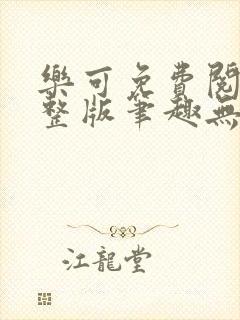 樂可免費閱
整版筆趣無
江龍堂